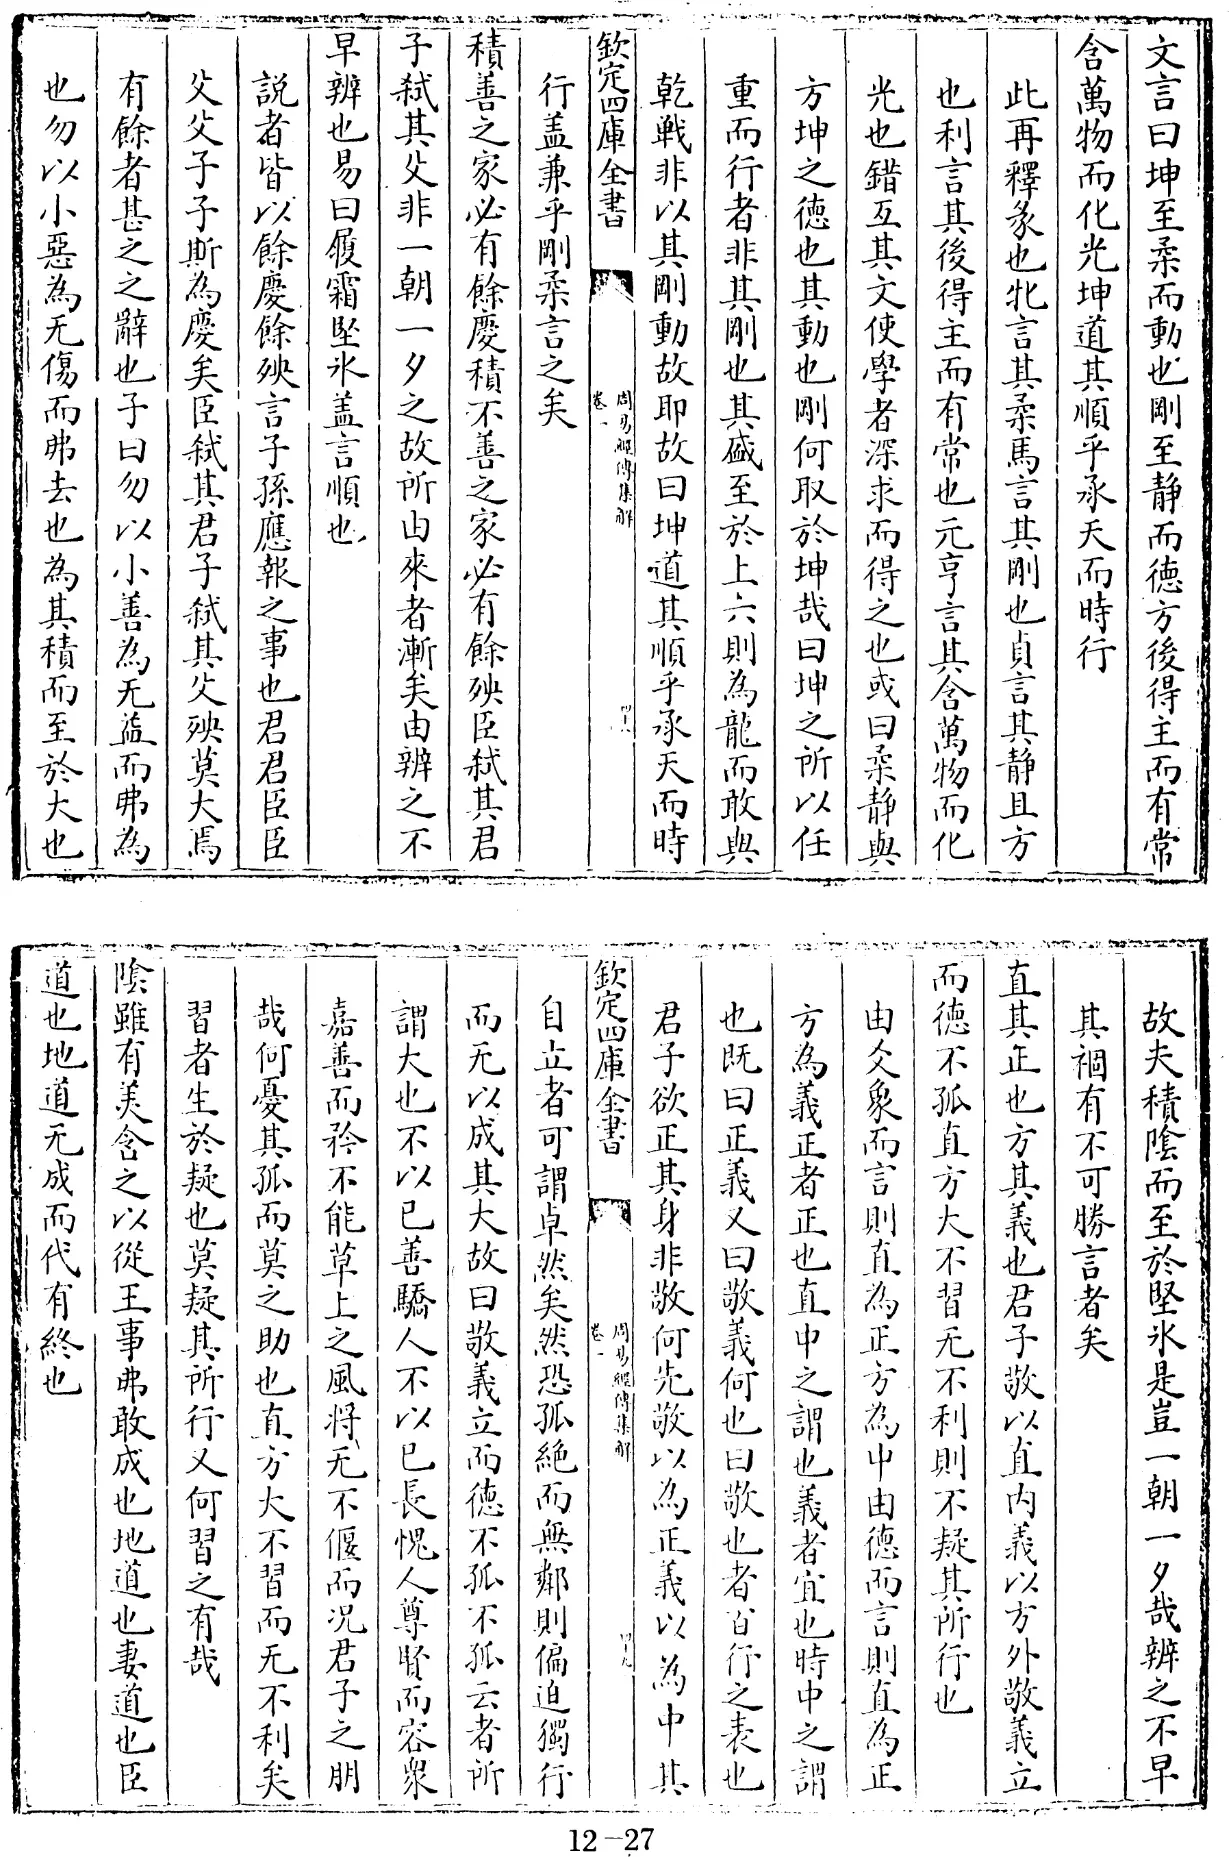 文言曰坤至柔而動也剛至靜而德方後得主而有常
含萬物而化光坤道其順乎承天而時行
此再釋彖也牝言其柔馬言其剛也貞言其靜且方
也利言其後得主而有常也元亨言其含萬物而化
光也錯互其文使學者深求而得之也或曰柔靜與
方坤之德也其動也剛何取於坤哉曰坤之所以任
重而行者非其剛也其盛至於上六則為龍而敢與
乾戰非以其剛動故耶故曰坤道其順乎承天而時
欽定四庫全書
周易經傳集解
卷一
行蓋兼乎剛柔言之矣
積善之家必有餘慶積不善之家必有餘殃臣弒其君
子弒其父非一朝一夕之故所由來者漸矣由辨之不
早辨也易曰履霜堅氷蓋言順也
説者皆以餘慶餘殃言子孫應報之事也君君臣臣
父父子子斯為慶矣臣弒其君子弒其父殃莫大焉
有餘者甚之之辭也子曰勿以小善為无益而弗為
也勿以小惡為无傷而弗去也為其積而至於大也
故夫積陰而至於堅氷是豈一朝一夕哉辨之不早
其禍有不可勝言者矣
直其正也方其義也君子敬以直内義以方外敬義立
而德不孤直方大不習无不利則不疑其所行也
由爻象而言則直為正方為中由德而言則直為正
方為義正者正也直中之謂也義者宜也時中之謂
也既曰正義又曰敬義何也曰敬也者百行之表也
君子欲正其身非敬何先敬以為正義以為中其
欽定四庫全書
周易經傳集解
卷一
四十九
自立者可謂卓然矣然恐孤絶而無鄰則偏迫獨行
而无以成其大故曰敬義立而德不孤不孤云者所
謂大也不以已善驕人不以已長愧人尊賢而容衆
嘉善而矜不能草上之風将无不偃而况君子之朋
哉何憂其孤而莫之助也直方大不習而无不利矣
習者生於疑也莫疑其所行又何習之有哉
陰雖有美含之以從王事弗敢成也地道也妻道也臣
道也地道无成而代有終也
12-27